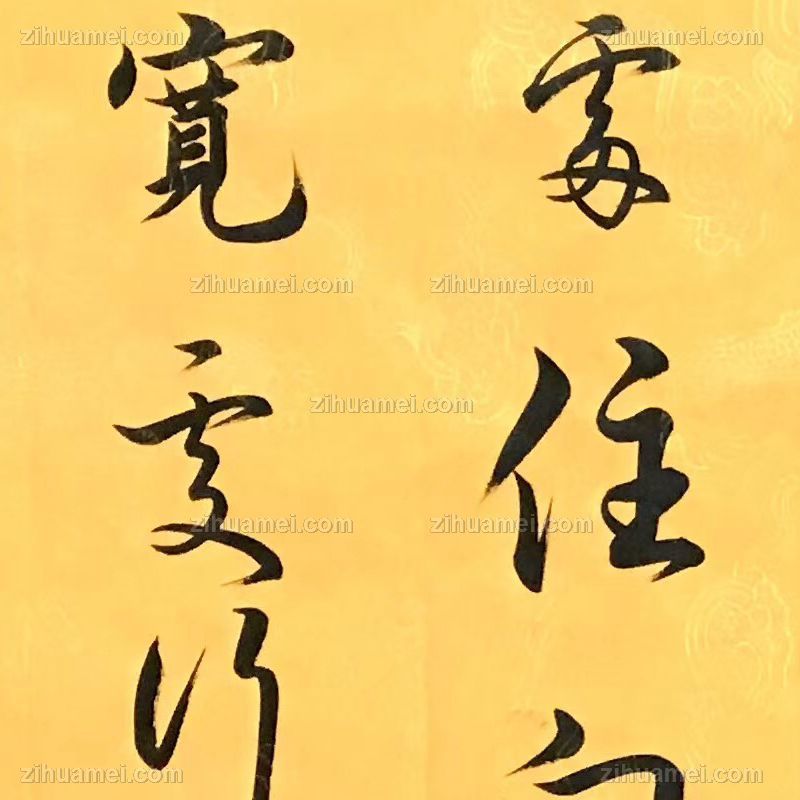 處住向
寬處行
zihuamei.com
zihuamei.com
zihuamei.com
zihuamei.com
zihuamei.com
zihuamei.com
zihuamei.com
zihuamei.com
zihuamei.com